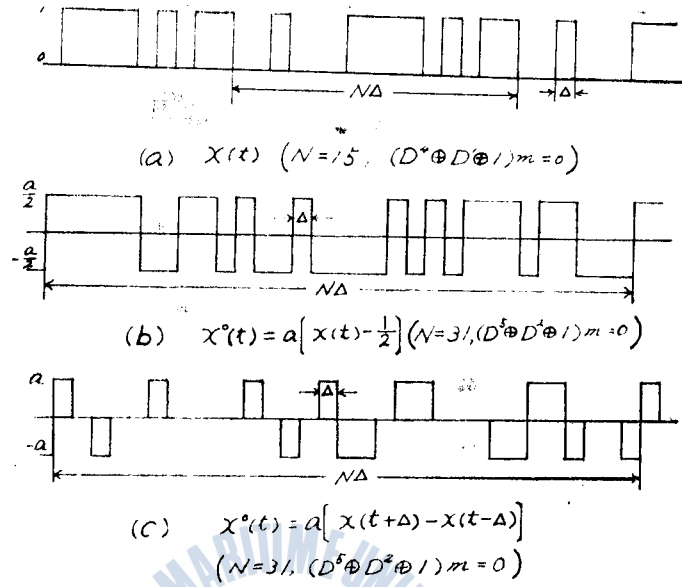 1
0
NΔ
Δ
(a) X(t) (N=15, (D⁴⊕D⊕1)m=0)
a/2
Δ
-a/2
NΔ
(b) X°(t) = a[x(t)-1/2](N=31,(D⁵⊕D²⊕1)m=0)
a
Δ
-a
NΔ
(c) X°(t) = a[x(t+Δ)-x(t-Δ)]
(N=31, (D⁵⊕D²⊕1)m=0)
MARITIME UNI